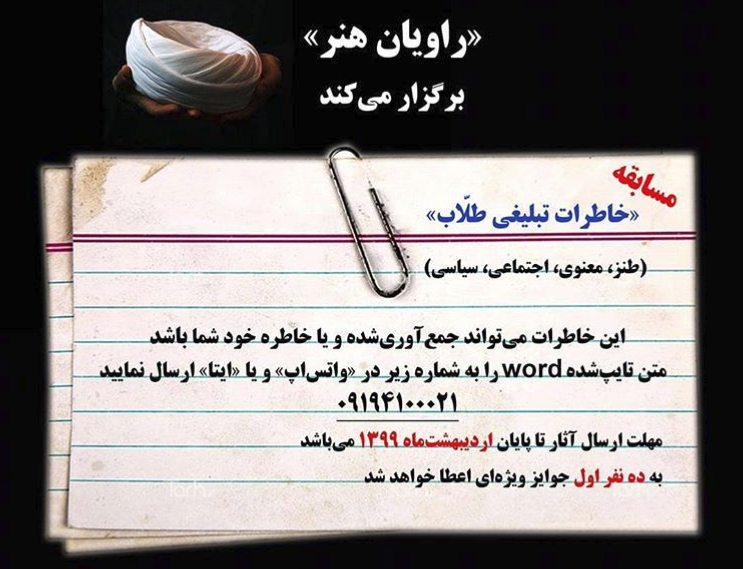 «راویان هنر»
برگزار می‌کند
مسابقه
«خاطرات تبلیغی طلّاب»
(طنز، معنوی، اجتماعی، سیاسی)
این خاطرات می‌تواند جمع‌آوری‌شده و یا خاطره خود شما باشد
متن تایپ‌شده word را به شماره زیر در «واتس‌اپ» و یا «ایتا» ارسال نمایید
۰۹۱۹۴۱۰۰۰۲۱
مهلت ارسال آثار تا پایان اردیبهشت‌ماه ۱۳۹۹ می‌باشد
به ده نفر اول جوایز ویژه‌ای اعطا خواهد شد